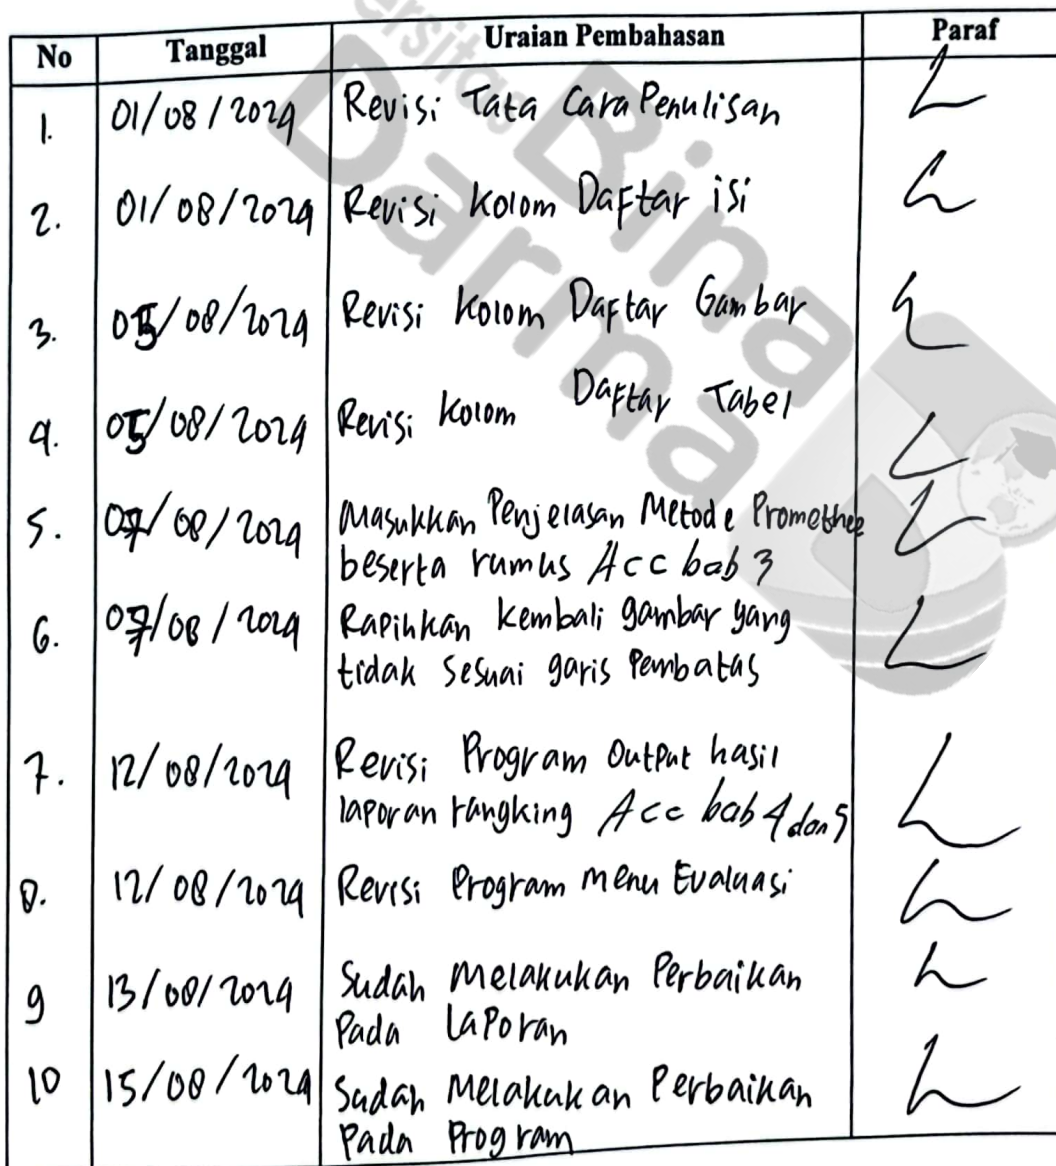 No Tanggal Uraian Pembahasan Paraf
1. 01/08/2024 Revisi Tata Cara Penulisan
2. 01/08/2024 Revisi Kolom Daftar isi
3. 05/08/2024 Revisi Kolom Daftar Gambar
4. 05/08/2024 Revisi Kolom Daftar Tabel
5. 07/08/2024 Masukkan Penjelasan Metode Promethee
beserta rumus Acc bab 3
6. 07/08/2024 Rapihkan kembali gambar yang
tidak sesuai garis Pembatas
7. 12/08/2024 Revisi Program Output hasil
laporan rangking Acc bab 4 dan 5
8. 12/08/2024 Revisi Program menu Evaluasi
9 13/08/2024 Sudah Melakukan Perbaikan
Pada Laporan
10 15/08/2024 Sudah Melakukan Perbaikan
Pada Program
Bina
Darma